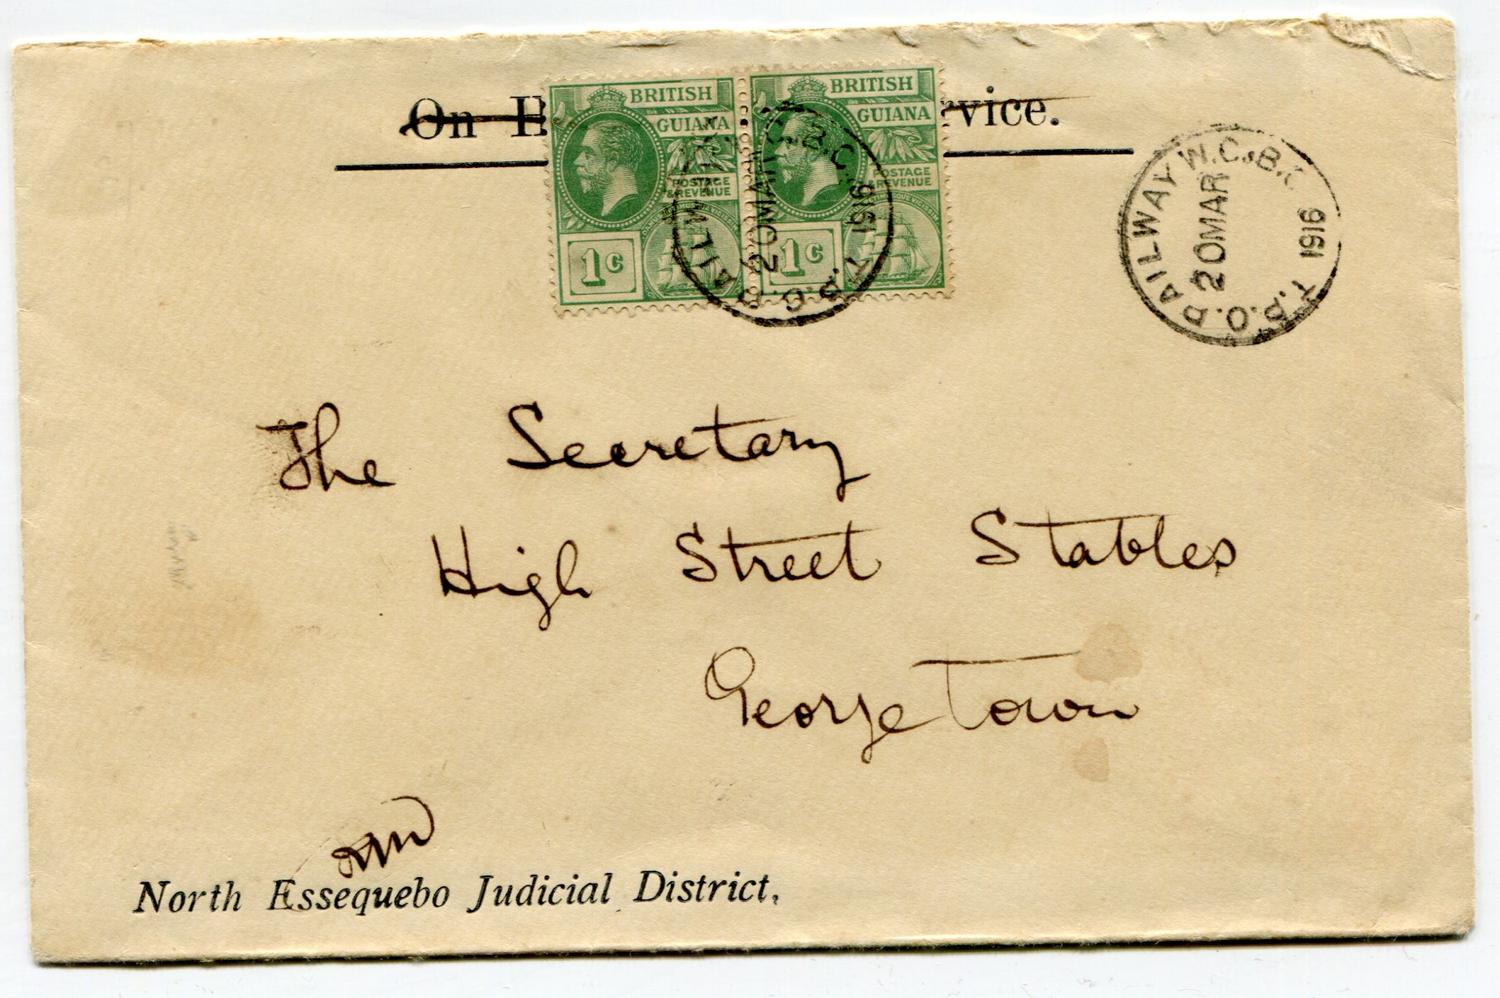 On H vice.
BRITISH GUIANA
POSTAGE & REVENUE
1c
BRITISH GUIANA
POSTAGE & REVENUE
1c
T.P.O. RAILWAY W.C.B.C.
20 MAR
1916
T.P.O. RAILWAY W.C.&B.C.
20 MAR
1916
The Secretary
High Street Stables
Georgetown
North Essequebo Judicial District.